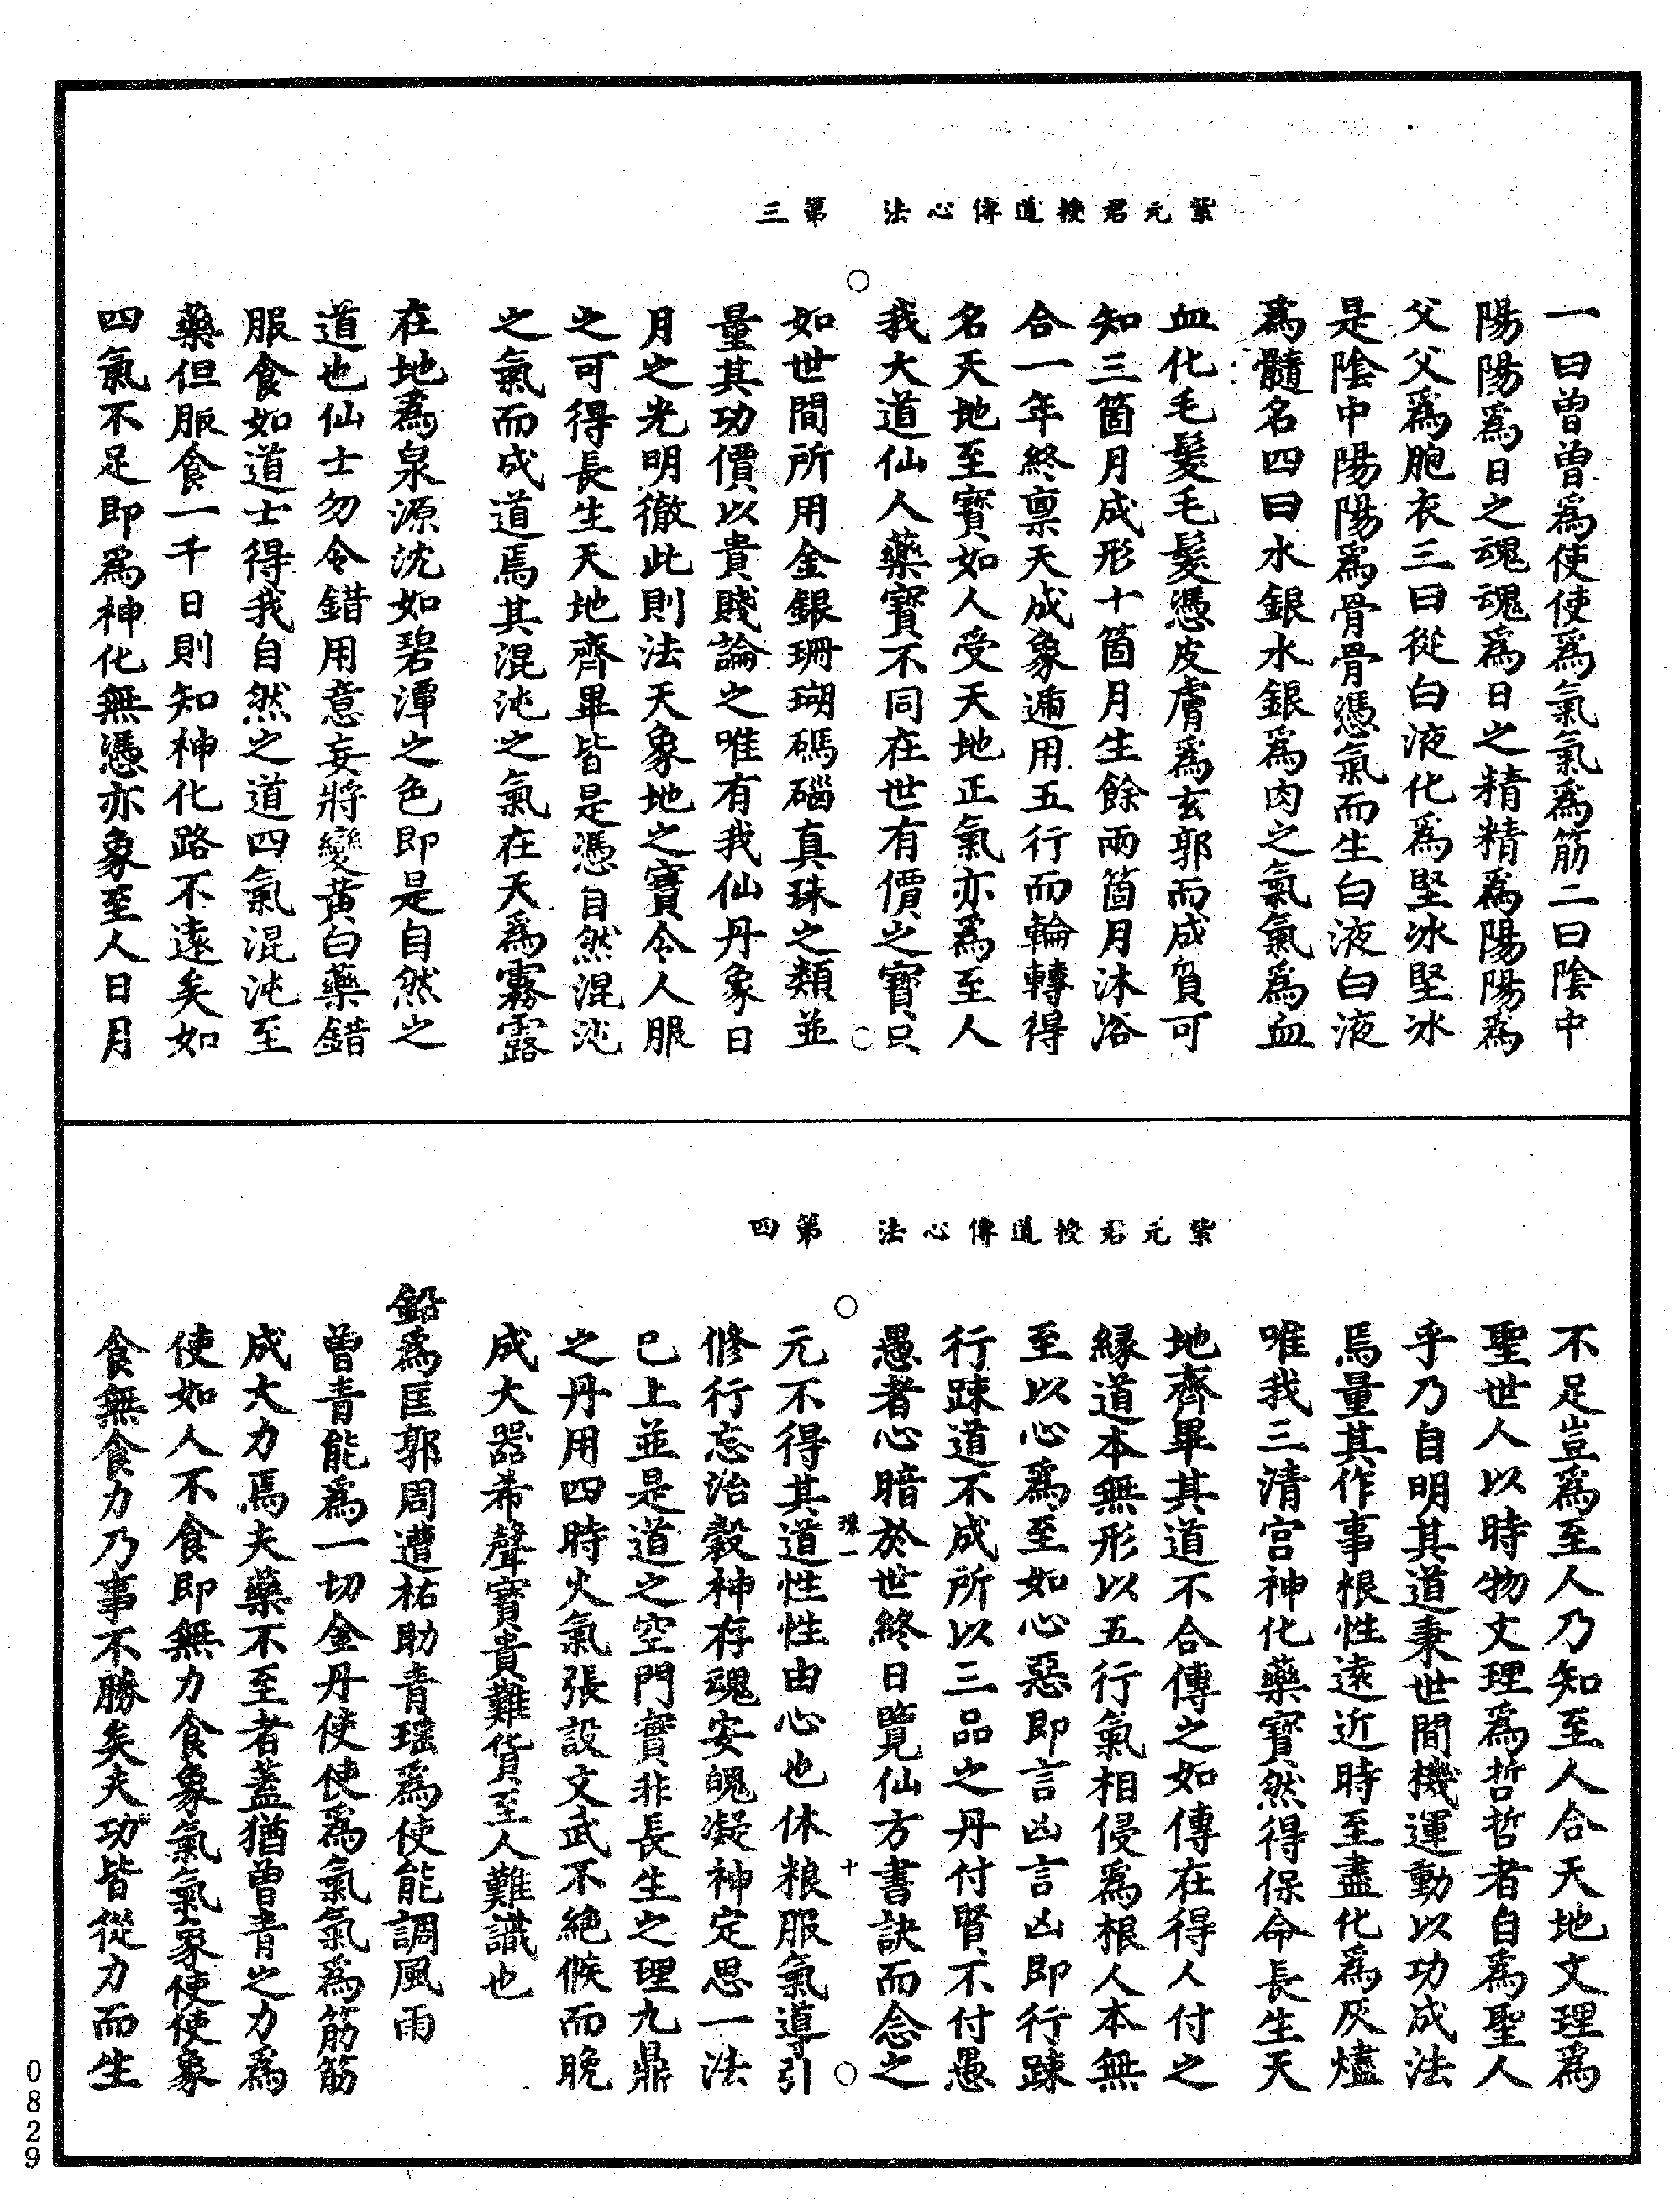 紫元君授道傳心法　第三
一曰曾曾爲使使爲氣氣爲筋二曰陰中
陽陽爲日之魂魂爲日之精精爲陽陽爲
父父爲胞衣三曰從白液化爲堅冰堅冰
是陰中陽陽爲骨骨憑氣而生白液白液
爲髓名四曰水銀水銀爲肉之氣氣爲血
血化毛髮毛髮憑皮膚爲玄郭而成負可
知三箇月成形十箇月生餘兩箇月沐浴
合一年終禀天成象遍用五行而輪轉得
名天地至寶如人受天地正氣亦爲至人
我大道仙人藥寶不同在世有價之寶只
如世間所用金銀珊瑚碼碯真珠之類並
量其功價以貴賤論之唯有我仙丹象日
月之光明徹此則法天象地之寶令人服
之可得長生天地齊畢皆是憑自然混沌
之氣而成道焉其混沌之氣在天爲霧露
在地爲泉源沈如碧潭之色即是自然之
道也仙士勿令錯用意妄將變黃白藥錯
服食如道士得我自然之道四氣混沌至
藥但服食一千日則知神化路不遠矣如
四氣不足即爲神化無憑亦象至人日月
紫元君授道傳心法　第四
不足豈爲至人乃知至人合天地文理爲
聖世人以時物文理爲哲哲者自爲聖人
乎乃自明其道秉世間機運動以功成法
焉量其作事根性遠近時至盡化爲灰燼
唯我三清宫神化藥寶然得保命長生天
地齊畢其道不合傳之如傳在得人付之
緣道本無形以五行氣相侵爲根人本無
至以心爲至如心惡即言凶言凶即行踈
行踈道不成所以三品之丹付賢不付愚
愚者心暗於世終日覽仙方書訣而念之
珠一　十
元不得其道性性由心也休粮服氣導引
修行忘治穀神存魂安魄凝神定思一法
已上並是道之空門實非長生之理九鼎
之丹用四時火氣張設文武不絶候而晚
成大器希聲寶貴難貨至人難識也
鉛爲匡郭周遭祐助青瑶爲使能調風雨
曾青能爲一切金丹使使爲氣氣爲筋筋
成大力焉夫藥不至者蓋猶曾青之力爲
使如人不食即無力食象氣氣象使使象
食無食力乃事不勝矣夫功皆從力而生
0829